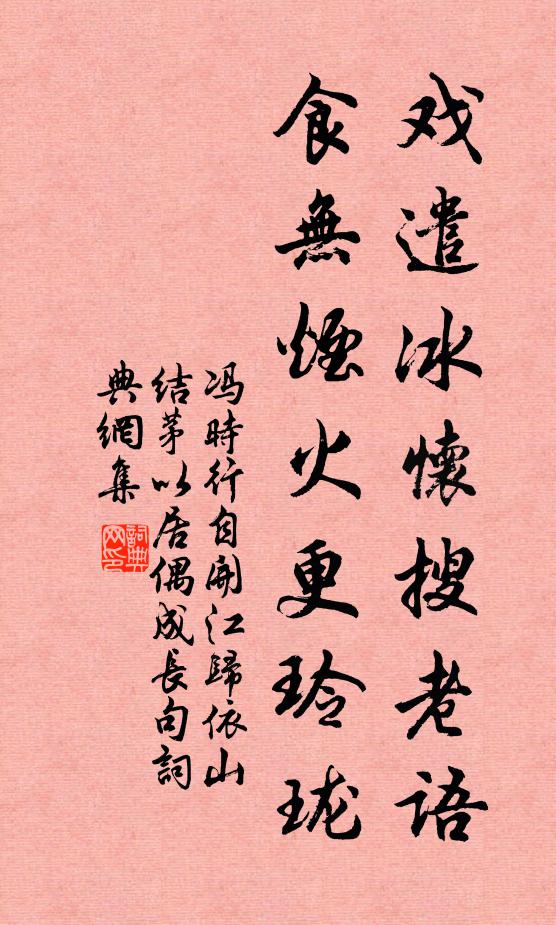 戏遣冰怀搜老语
食無煙火更玲珑
冯時行自開江歸依山
结茅以居偶成長句詞
典網集
詞典
网印